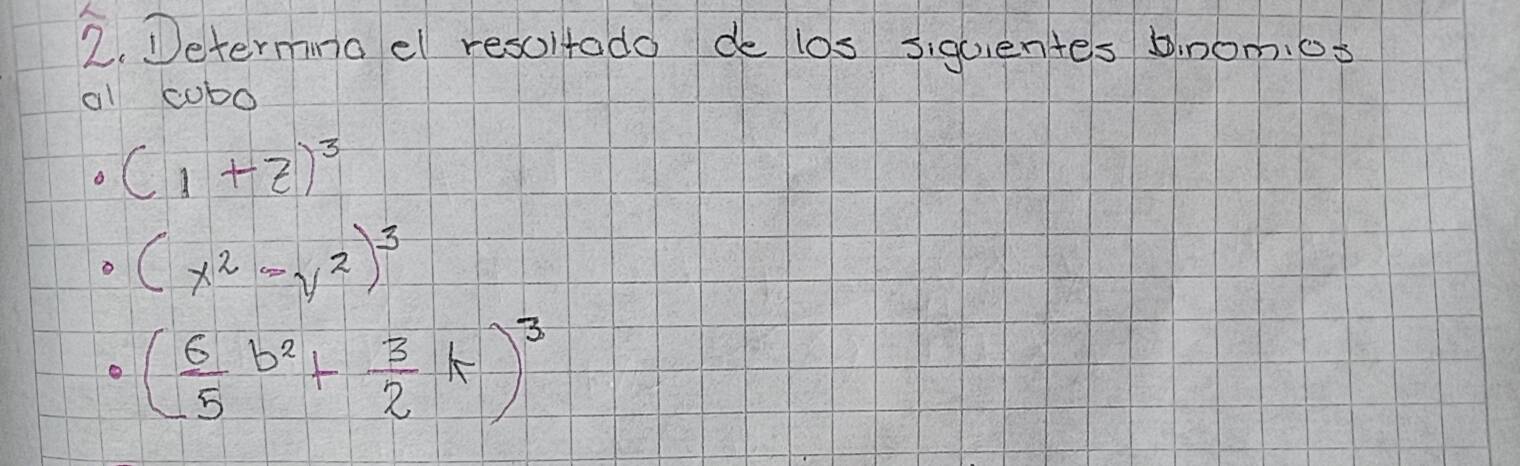 2. Determina el resultado de los siguientes binomios
al cubo
• (1 + z)³
• (x² - y²)³
• (6/5 b² + 3/2 k)³